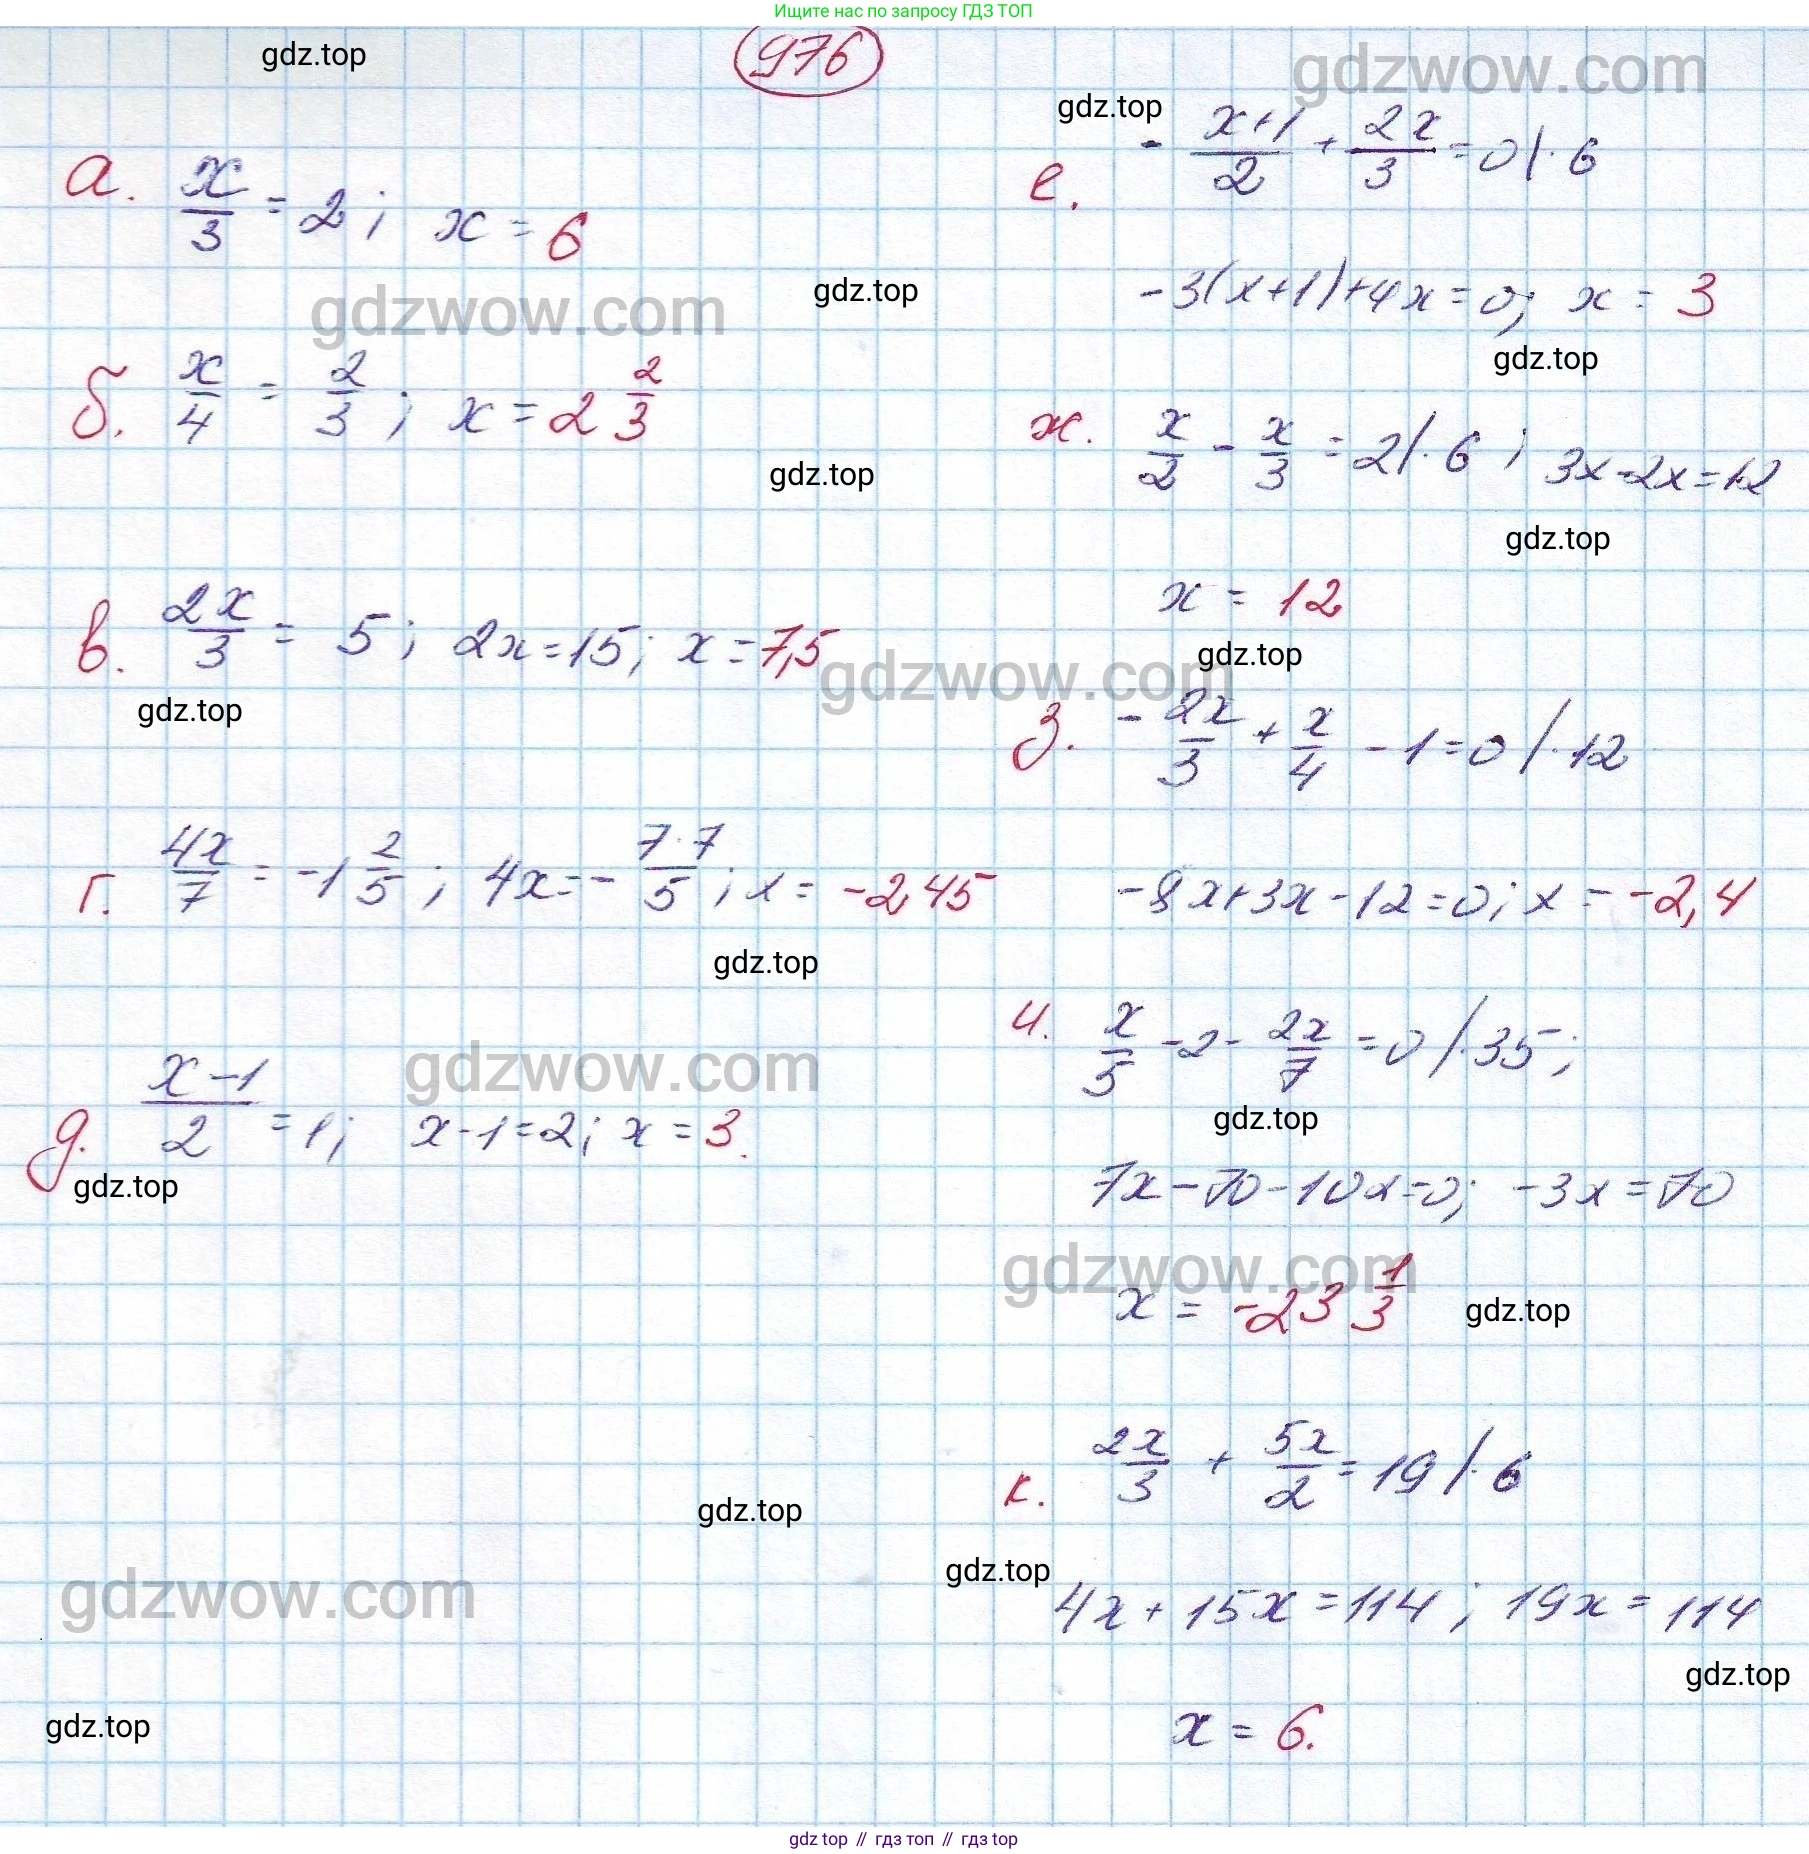 Ищите нас по запросу ГДЗ ТОП
976
gdz.top
gdzwow.com
а. x/3 = 2; x = 6
gdz.top
gdzwow.com
б. x/4 = 2/3; x = 2 2/3
gdz.top
в. 2x/3 = 5; 2x = 15; x = 7,5
gdzwow.com
gdz.top
г. 4x/7 = -1 2/5; 4x = - 7·7/5; x = -2,45
gdz.top
gdzwow.com
д. x-1/2 = 1; x-1=2; x = 3.
gdz.top
gdz.top
е. - x+1/2 + 2x/3 = 0 |·6
-3(x+1)+4x=0; x = 3
gdz.top
ж. x/2 - x/3 = 2 |·6; 3x-2x=12
gdz.top
x = 12
gdz.top
з. - 2x/3 + x/4 - 1 = 0 |·12
-8x+3x-12=0; x = -2,4
и. x/5 - 2 - 2x/7 = 0 |·35;
gdz.top
7x-70-10x=0; -3x=70
gdzwow.com
x = -23 1/3
gdz.top
к. 2x/3 + 5x/2 = 19 |·6
gdz.top
gdz.top
gdzwow.com
4x+15x=114; 19x=114
gdz.top
x = 6.
gdz.top
gdz top // гдз топ // гдз top